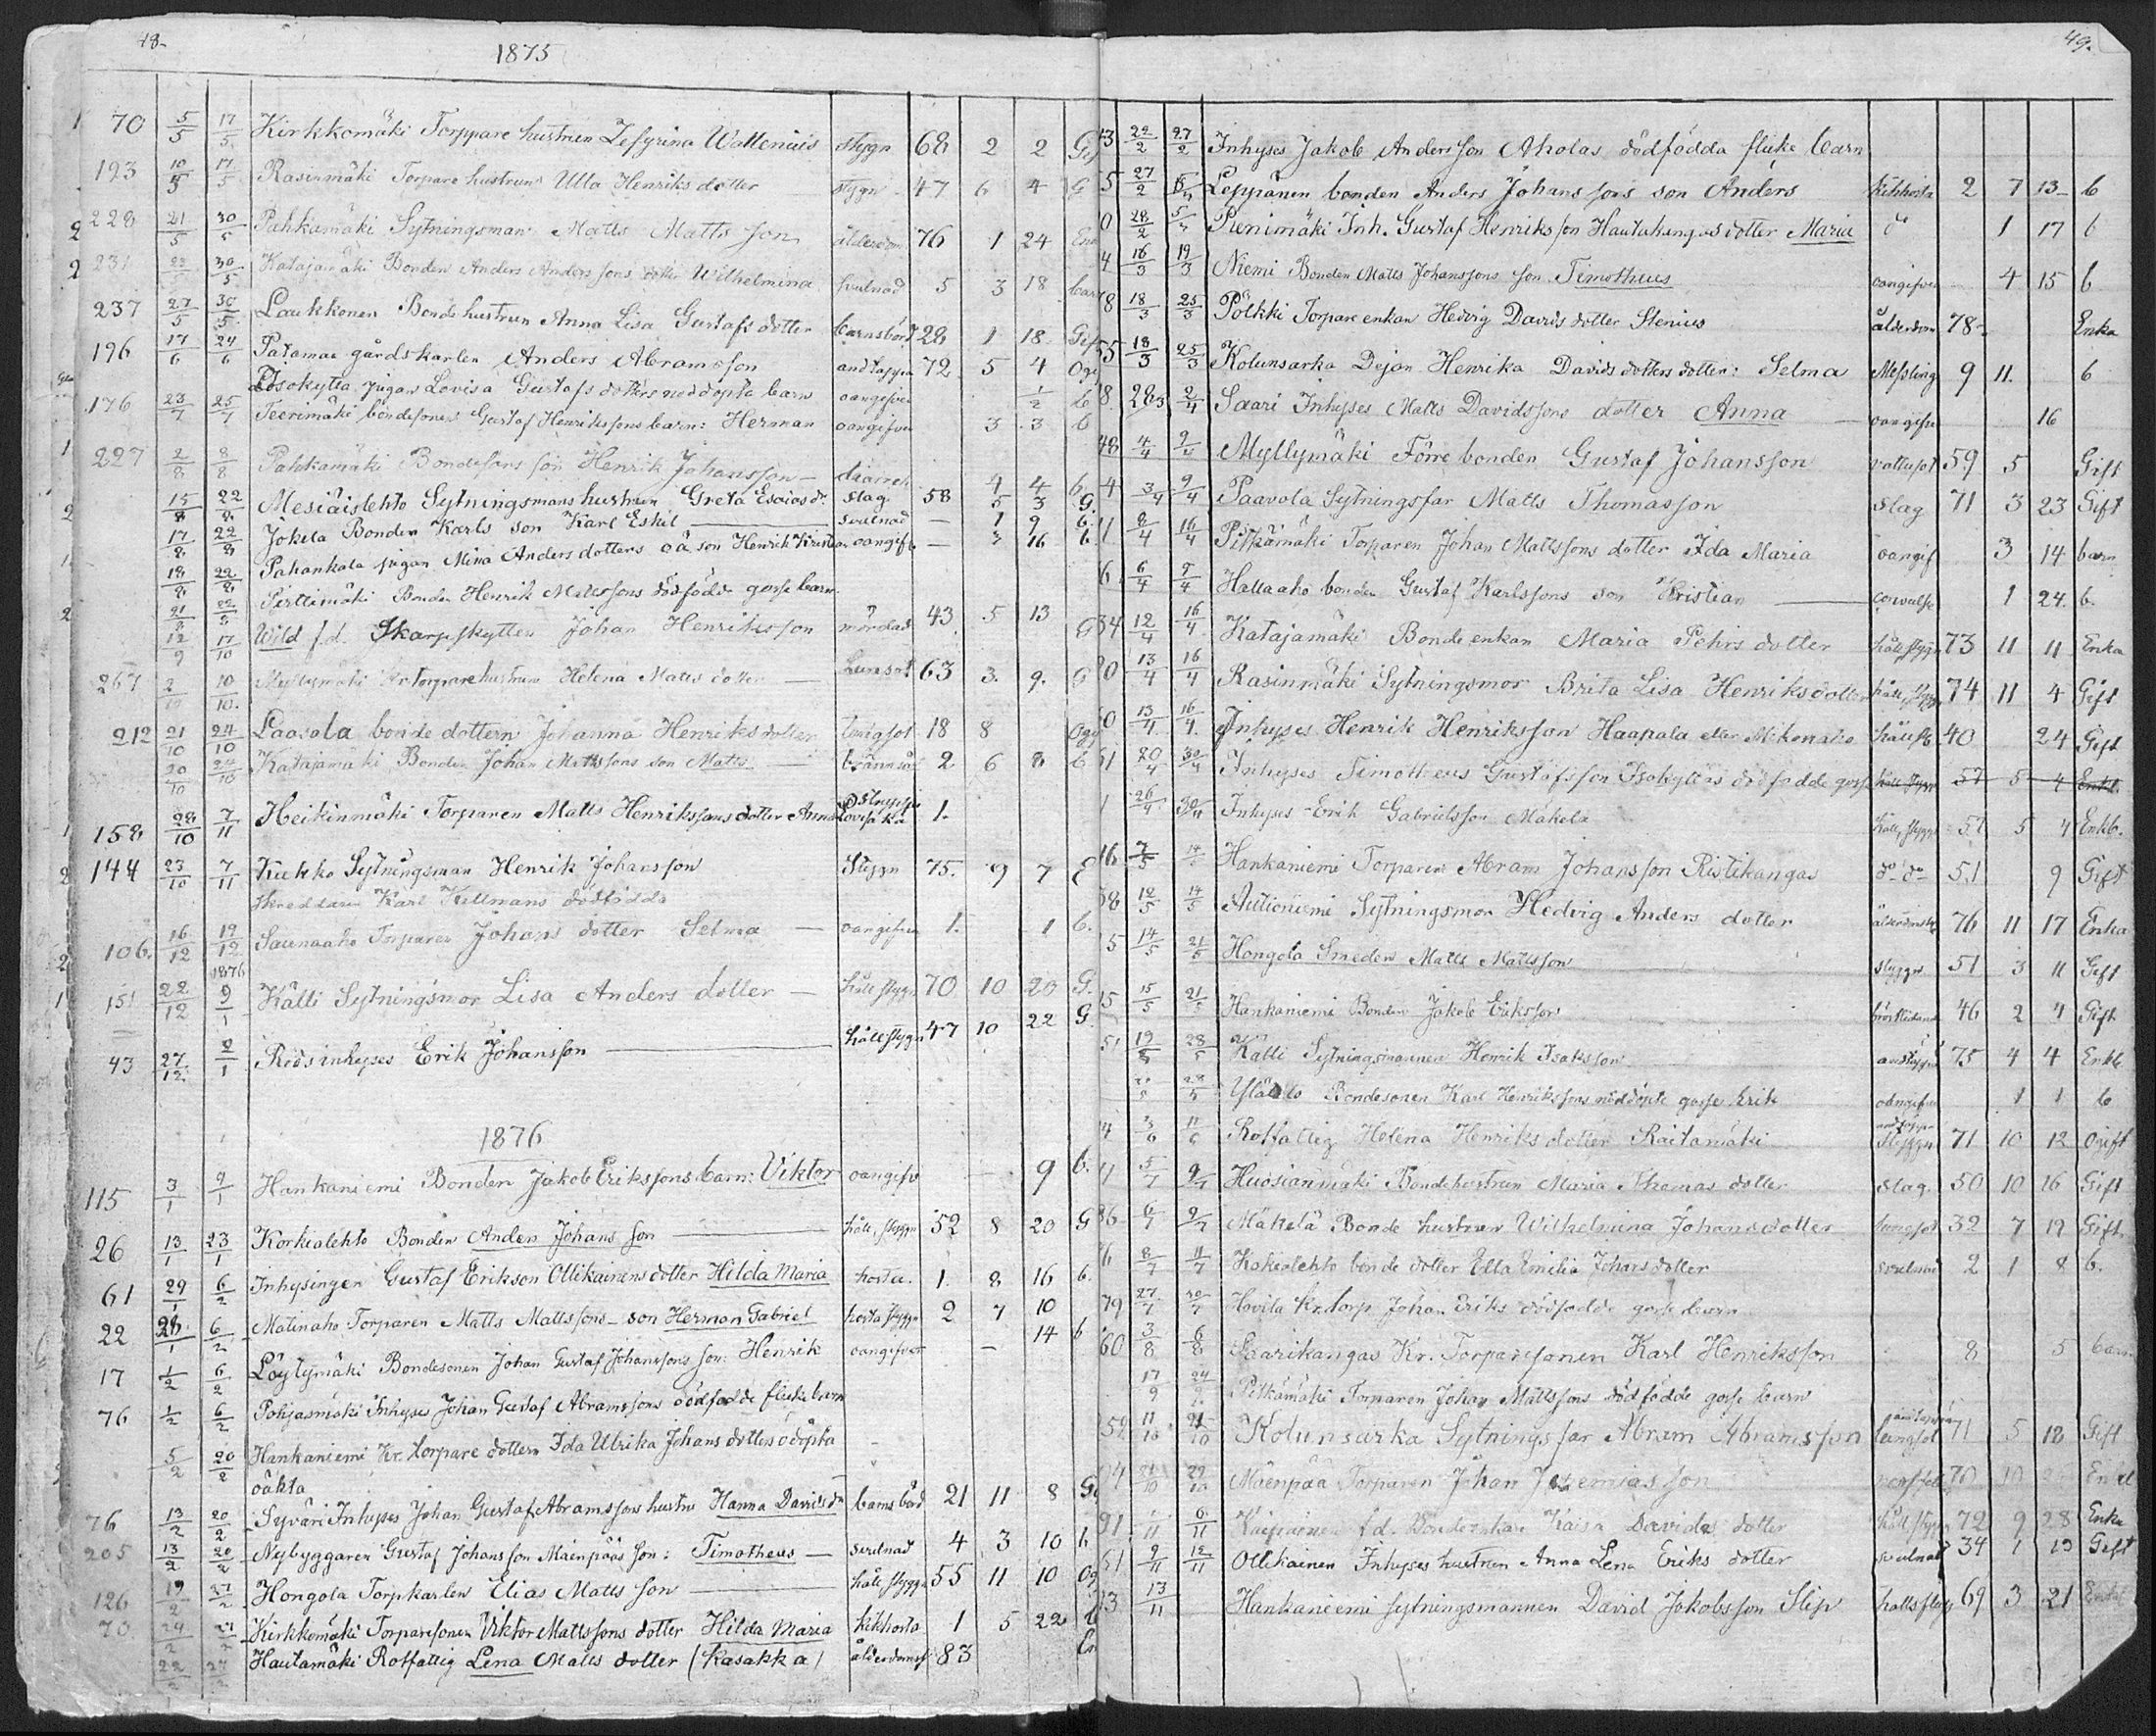 48.
1875
1 70 5/5 17/5 Kirkkomäki Torppare hustrun Zefyrina Wallenius stygn 68 2 2 Gif
193 10/5 17/5 Rasinmäki Torpare hustrun Ulla Henriks dotter stygn 47 6 4 G
2 228 21/5 30/5 Pahkamäki Sytningsman Matts Matts son ålderdom 76 1 24 Enk
2 231 30/5 Katajamäki Bonden Anders Anders sons dotter Wilhelmina svulnad 5 3 18 barn
237 27/5 30/5 Laukkonen Bonde hustrun Anna Lisa Gustafs dotter barnsbörd 28 1 18 Gif
196 17/6 24/6 Patamaa gårdskarlen Anders Abramsson andtäppa 72 5 4 Ogi
Isokytta pigan Lovisa Gustafs dotters nöddöpta barn oangifven 1/2 b
176 23/7 25/7 Teerimäki bondesonen Gustaf Henrikssons barn: Herman oangifven 3 3 b
1 227 2/8 8/8 Pahkamäki Bondesons son Henrik Johansson – diarreh 4 4 b
2 15/8 22/8 Mesiäislehto Sytningsmans hustrun Greta Esaias dr slag 58 5 3 G.
17/8 22/8 Jokela Bonden Karls son Karl Eskil svulnad – 1 9 b.
1. 18/8 22/8 Pahankala pigan Mina Anders dotters oä son Henrik Kristian oangifv – 3 16 b
2 21/8 22/8 Pirttimäki Bonden Henrik Mattssons dödfödde gosse barn
12/9 17/10 Wild f.d. Skarpskytten Johan Henriksson mördad 43 5 13 G
267 10/10. Myllymäki Kr torparehustrun Helena Matts dotter – Lungsot 63 3. 9. G
212 21/10 24/10 Laasala bonde dottern Johanna Henriks dotter lungsot 18 8 Ogi
20/10 24/10 Katajamäki Bonden Johan Mattssons son Matts – brännsår 2 6 8 b
1 158 28/10 7/11 Heikinmäki Torparen Matts Henrikssons dotter Anna Lovisa Strypsju 1.
2 144 23/10 7/11 Kukko Sytningsman Henrik Johansson Stygn 75. 9 7 E
Skreddaren Karl Killmans dödfödda
2 106. 16/12 19/12 Saunaaho Torparen Johans dotter Selma – oangifven 1. 1 b.
1 151 22/12 1876 9/1 Kälti Sytningsmor Lisa Anders dotter – håll stygn 70 10 20 G.
43 27/12 2/1 Rödsinhyses Erik Johansson håll stygn 47 10 22 G
1876
115 3/1 9/1 Hankaniemi Bonden Jakob Erikssons barn: Viktor oangifv 9 b.
26 13/1 23/1 Korkialehto Bonden Anders Johans son håll, stygn 52 8 20 G
61 29/1 6/2 Inhysingen Gustaf Erikson Ollikainens dotter Hilda Maria hosta. 1. 8 16 b.
22 28/1 6/2 Matinaho Torparen Matts Mattssons – son Herman Gabriel hosta stygn 2 7 10
17 1/2 6/2 Löytymäki Bondesonen Johan Gustaf Johanssons son: Henrik oangifven – 14 b
76 1/2 6/2 Pohjasmäki Inhyses Johan Gustaf Abramssons dödfödde flicke barn
5/2 20/2 Hankaniemi Kr. torpare dottern Ida Ulrika Johans dotters odöpta
oäkta
76 13/2 20/2 Syväri Inhyses Johan Gustaf Abramssons hustru Hanna Davids dr barns börd 21 11 8 G
205 13/2 20/2 Nybyggaren Gustaf Johansson Mäenpääs son: Timotheus – svulnad 4 3 10 b
126 19/2 27/2 Hongola Torpkarlen Elias Matts son håll stygn 55 11 10 Og
70 24/2 27/2 Kirkkomäki Torparesonen Viktor Mattssons dotter Hilda Maria kikhosta 1 5 22 b
22/2 27/2 Hautamäki Rotfattig Lena Matts dotter (Kasakka) ålderdomsf 83 En
49.
3 22/2 27/2 Inhyses Jakob Andersson Aholas dödfödda flicke barn
5 27/2 Leppänen bonden Anders Johanssons son Anders kikhosta 2 7 13 b
0 28/2 5/3 Pienimäki Inh. Gustaf Henriksson Hautakangas dotter Maria d 1 17 b
4 16/3 19/3 Niemi Bonden Matts Johanssons son Timotheus oangifven 4 15 b
8 18/3 25/3 Pölkki Torpare enkan Hedvig Davids dotter Stenius ålderdom 78 – Enka
55 18/3 25/3 Kolunsarka Pejan Henrika Davids dotters dotter: Selma Messling 9 11. b
8 28/3 2/4 Saari Inhyses Matts Davidssons dotter Anna – oangifve 16
48 4/4 9/4 Myllymäki Förre bonden Gustaf Johansson vattusot 59 5 Gift
4 3/4 9/4 Paavola Sytningsfar Matts Thomasson slag 71 3 23 Gift
1 8/4 16/4 Pitkämäki Torparen Johan Mattssons dotter Ida Maria oangif 3 14 barn
6 6/4 9/4 Hallaaho bonden Gustaf Karlssons son Kristian convulse 1 24. b.
34 12/4 16/4 Katajamäki Bonde enkan Maria Pehrs dotter håll stygn 73 11 11 Enka
0 13/4 16/4 Rasinmäki Sytningsmor Brita Lisa Henriksdotter håll, stygn 74 11 4 Gift
0 13/4 16/4. Inhyses Henrik Henriksson Haapala eller Mikonaho håll st 40 24 Gift
51 20/4 30/4 Inhyses Timotheus Gustafsson Isokyttäs dödfödde gosse håll stygn 57 5 4 Enkl
1 26/4 30/4 Inhyses Erik Gabrielsson Mäkelä håll, stygn 57 5 4 Enkl.
16 7/5 14/5 Hankaniemi Torparen Abram Johansson Ristikangas do do 51 9 Gift
38 12/5 14/5 Autioniemi Sytningsmor Hedvig Anders dotter ålderdomsf 76 11 17 Enka
5 14/5 21/5 Hongola Smeden Matts Mattsson stygn 51 3 11 Gift
15 15/5 21/5 Hankaniemi Bonden Jakob Eriksson bröstlidand 46 2 7 Gift
51 19/5 28/5 Kälti Sytningsmannen Henrik Isaksson andtäppa 75 4 4 Enkl
28/5 Ylätalo Bondesonen Karl Henrikssons nöddöpte gosse Erik oangifven 1 1 b
4 3/6 11/6 Rotfattig Helena Henriks dotter Raitamäki andtäppa Stygn 71 10 12 Ogift
5/7 9/7 Huosianmäki Bondehustrun Maria Thomas dotter slag. 50 10 16 Gift
36 6/7 9/7 Mäkelä Bonde hustrun Wilhelmina Johansdotter lungsot 32 7 19 Gift
6 8/7 11/7 Kokiolehto bonde dotter Edla Emilia Johans dotter svulnad 2 1 8 b.
79 27/7 30/7 Hovila kr. torp. Johan Eriks dödfödde gosse barn
60 3/8 6/8 Saarikangas Kr. Torparesonen Karl Henriksson 8 5 barn
17/9 24/9 Pitkämäki Torparen Johan Mattssons dödfödde gosse barn
52 11/10 21/10 Kolunsarka Sytnings far Abram Abramsson lungsot 71 5 18 Gift
4 21/10 29/10 Mäenpää Torparen Johan Jeremias son 70 10 Enkl
91 /11 6/11 Kaipainen f.d. Bonde enkan Kaisa Davids dotter håll stygn 72 9 28 Enka
51 9/11 12/11 Ollikainen Inhyses hustrun Anna Lena Eriks dotter svulnad 34 1 19 Gift
3 13/11 Hankaniemi sytningsmannen David Jakobsson Slip hallstyg 69 3 21 Enkl